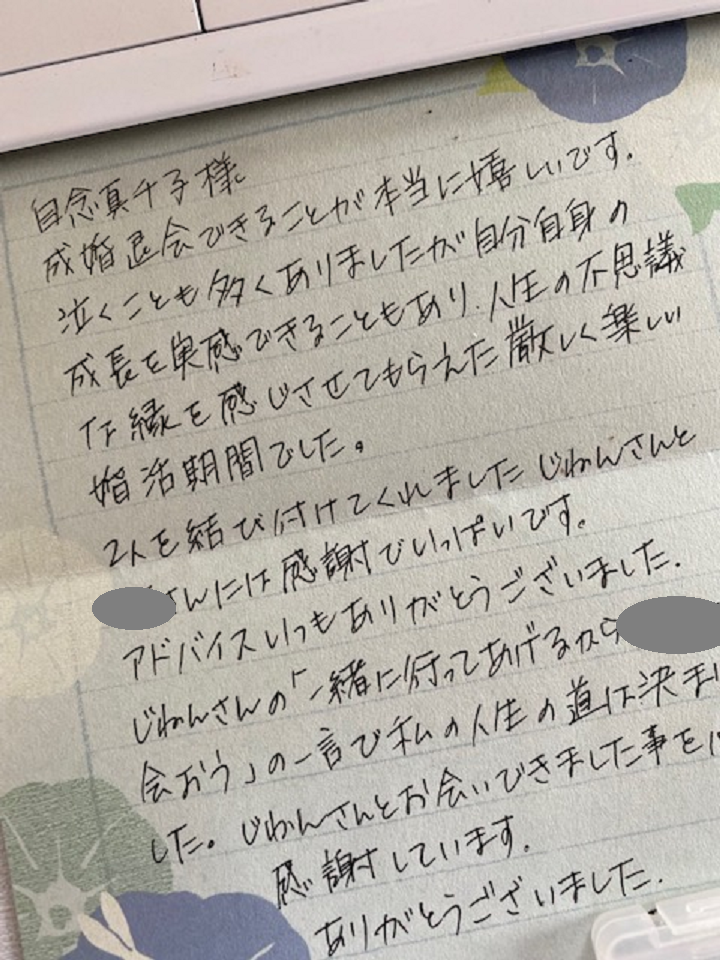 自念真千子様
成婚退会できることが本当に嬉しいです。
泣くことも多くありましたが自分自身の
成長を実感できることもあり、人生の不思議
な縁を感じさせてもらえた厳しく楽しい
婚活期間でした。
2人を結び付けてくれました じねんさんと
さんには感謝でいっぱいです。
アドバイスいつもありがとうございました。
じねんさんの「一緒に行ってあげるから
会おう」の一言で私の人生の道は決まり
した。じねんさんとお会いできました事を
感謝しています。
ありがとうございました。